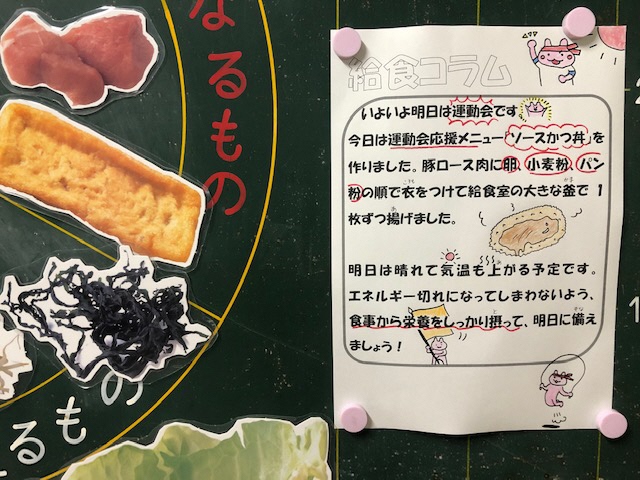 なるもの
るもの
給食コラム
いよいよ明日は運動会です。
今日は運動会応援メニュー「ソースかつ丼」を
作りました。豚ロース肉に卵、小麦粉、パン
粉の順で衣をつけて給食室の大きな釜で1
枚ずつ揚げました。
明日は晴れて気温も上がる予定です。
エネルギー切れになってしまわないよう、
食事から栄養をしっかり摂って、明日に備え
ましょう!